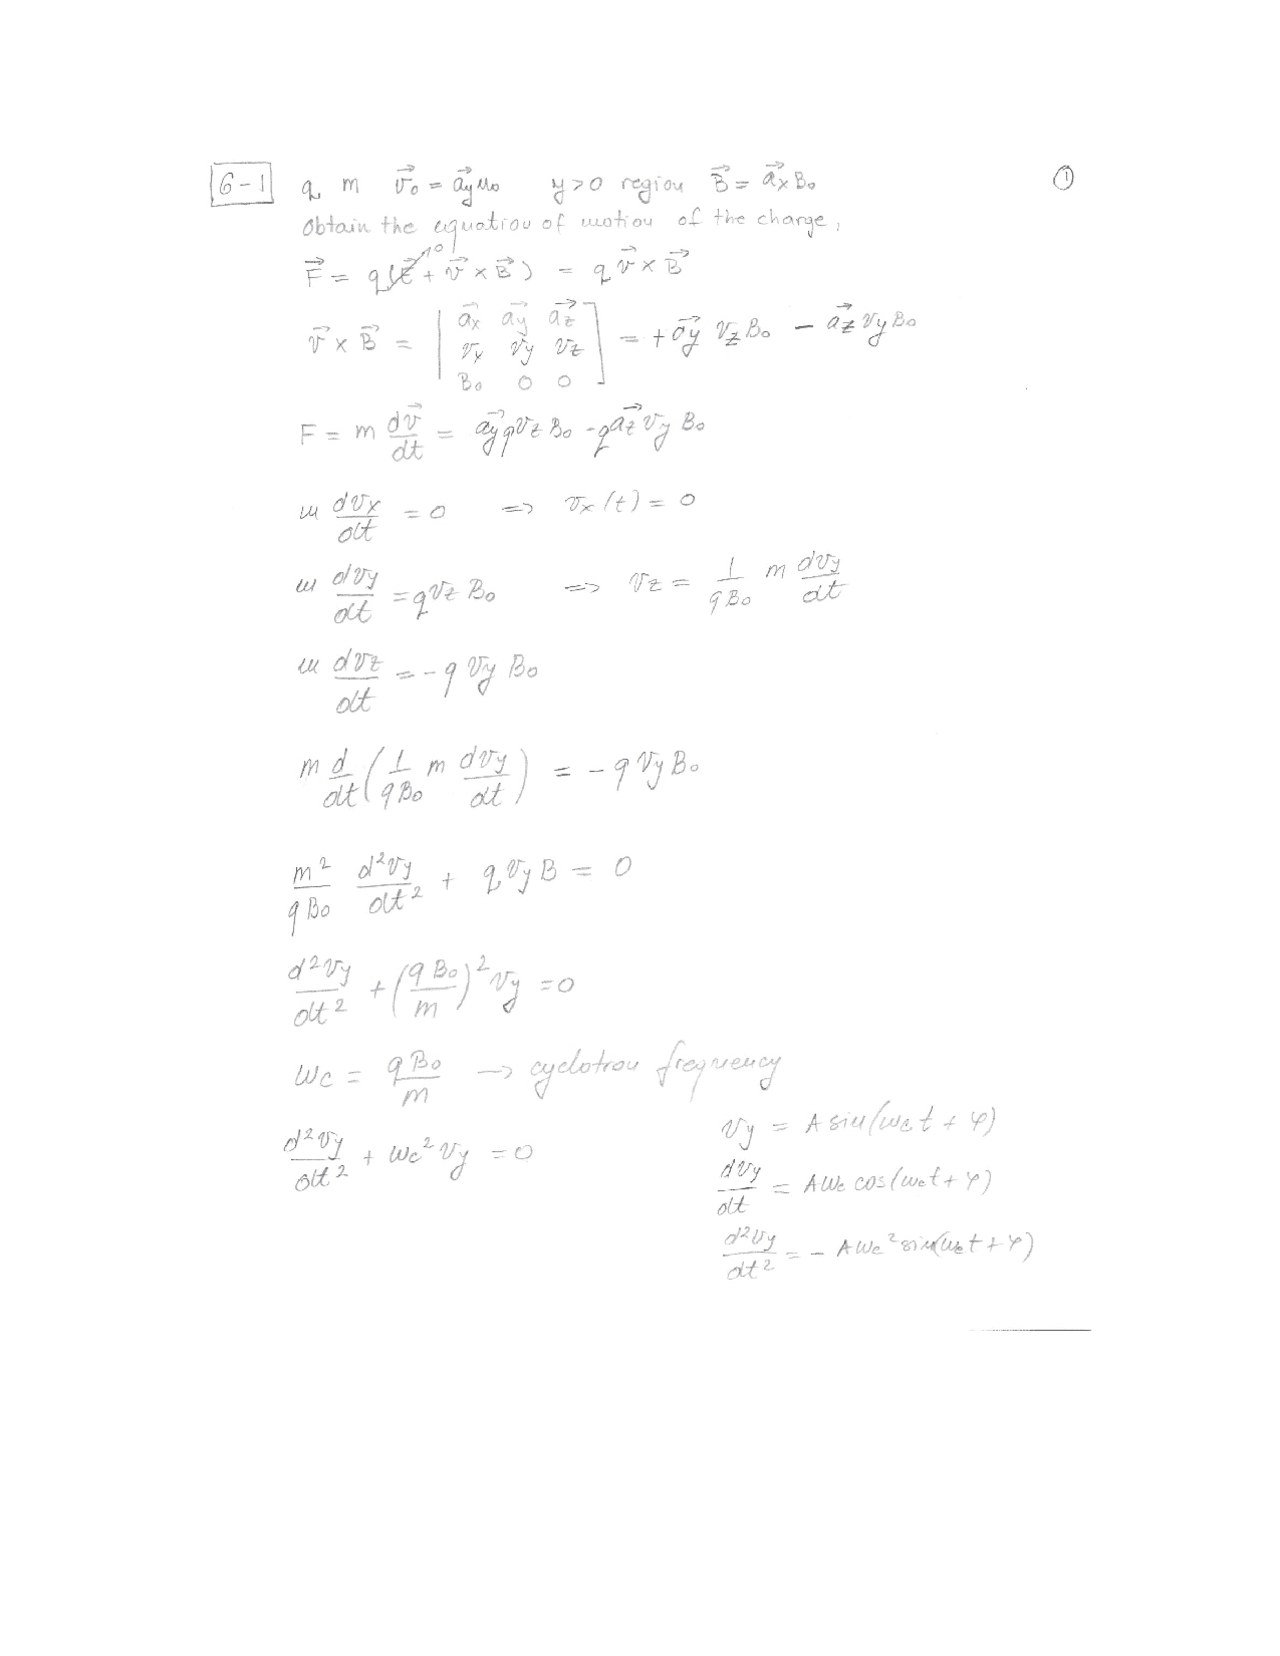 6-1 q m v⃗₀ = a⃗y u₀ y>0 region B⃗ = a⃗x B₀ ①
Obtain the equation of motion of the charge,
F⃗ = q(E⃗ + v⃗ × B⃗) = q v⃗ × B⃗
0
v⃗ × B⃗ = | a⃗x a⃗y a⃗z ; vx vy vz ; B₀ 0 0 | = + a⃗y vz B₀ − a⃗z vy B₀
F = m dv⃗/dt = a⃗y q vz B₀ - q a⃗z vy B₀
m dvx/dt = 0 => vx(t) = 0
m dvy/dt = q vz B₀ => vz = 1/(qB₀) m dvy/dt
m dvz/dt = - q vy B₀
m d/dt (1/(qB₀) m dvy/dt) = - q vy B₀
m²/(qB₀) d²vy/dt² + q vy B = 0
d²vy/dt² + (qB₀/m)² vy = 0
wc = qB₀/m → cyclotron frequency
d²vy/dt² + wc² vy = 0
vy = A sin(wc t + φ)
dvy/dt = A wc cos(wc t + φ)
d²vy/dt² = - A wc² sin(wc t + φ)